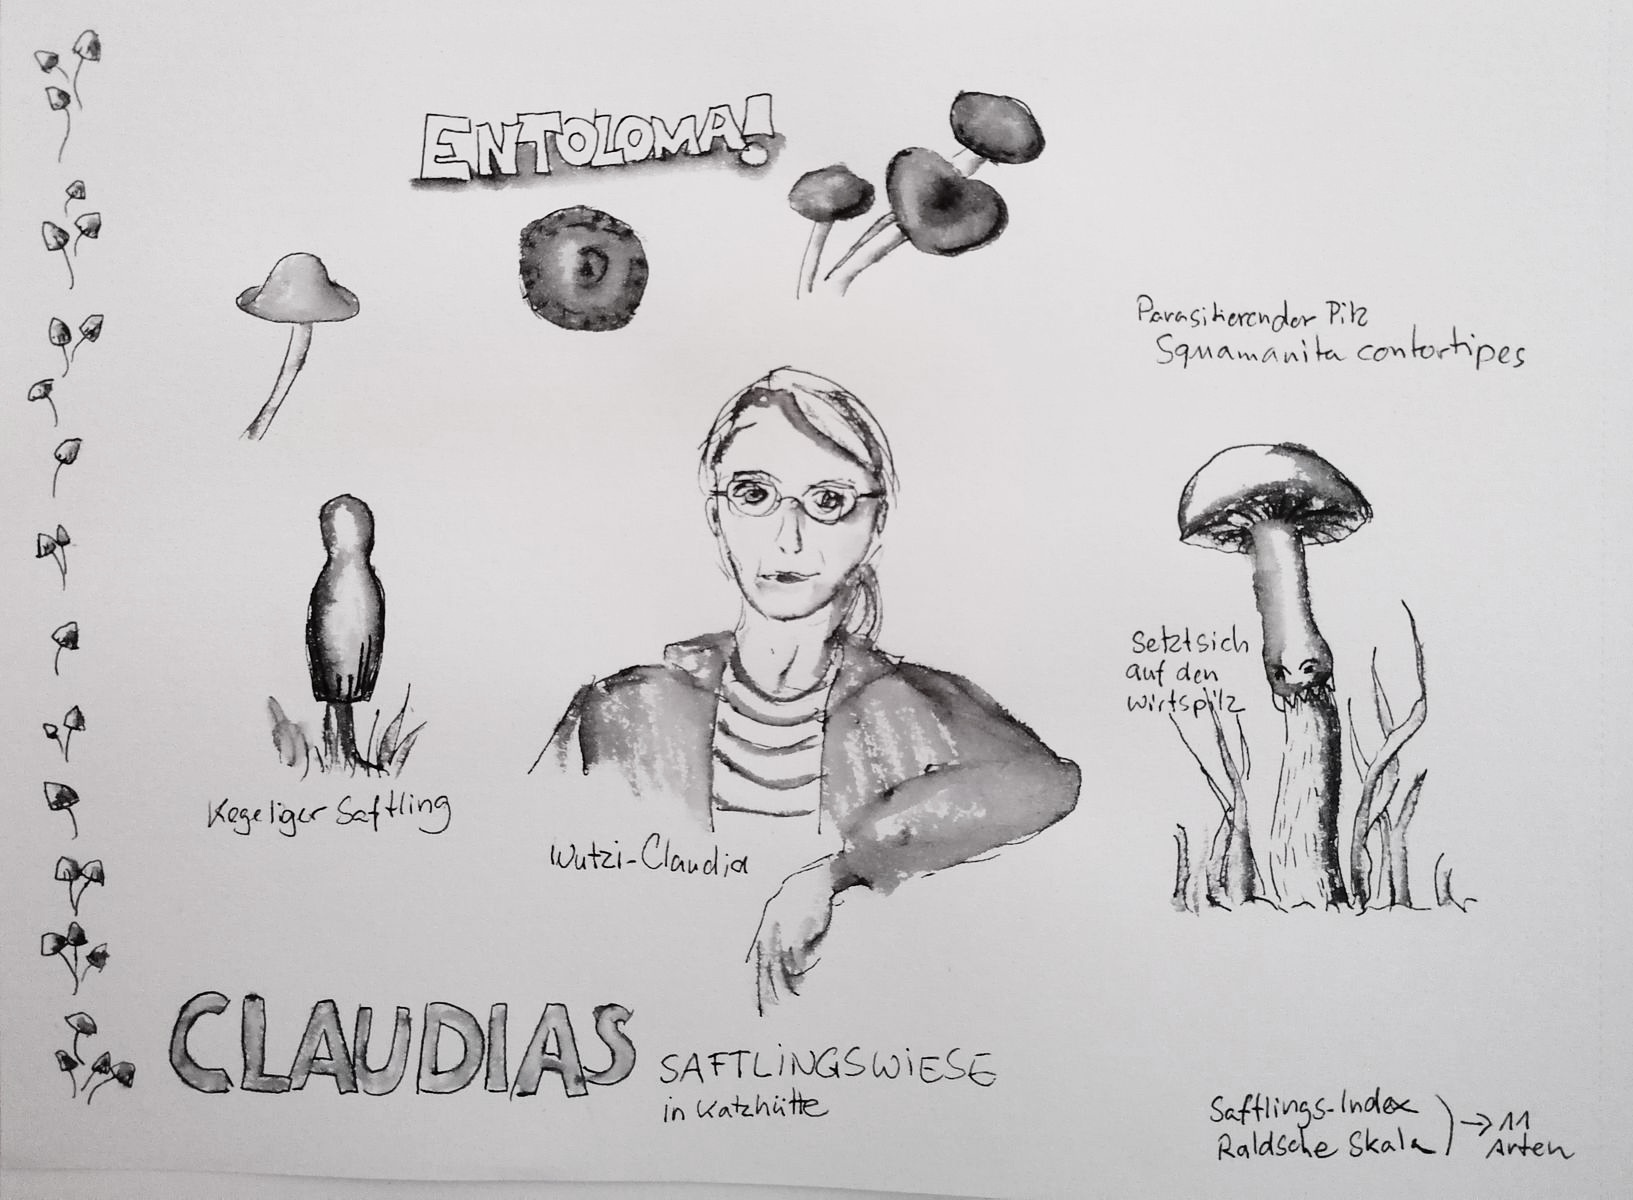 ENTOLOMA!
Parasitierender Pilz
Squamanita contortipes
setzt sich
auf den
wirtspilz
Kegeliger Saftling
Wutzi-Claudia
CLAUDIAS
SAFTLINGSWIESE
in Katzhütte
Saftlings-Index
Raldsche Skala
→ 11
Arten